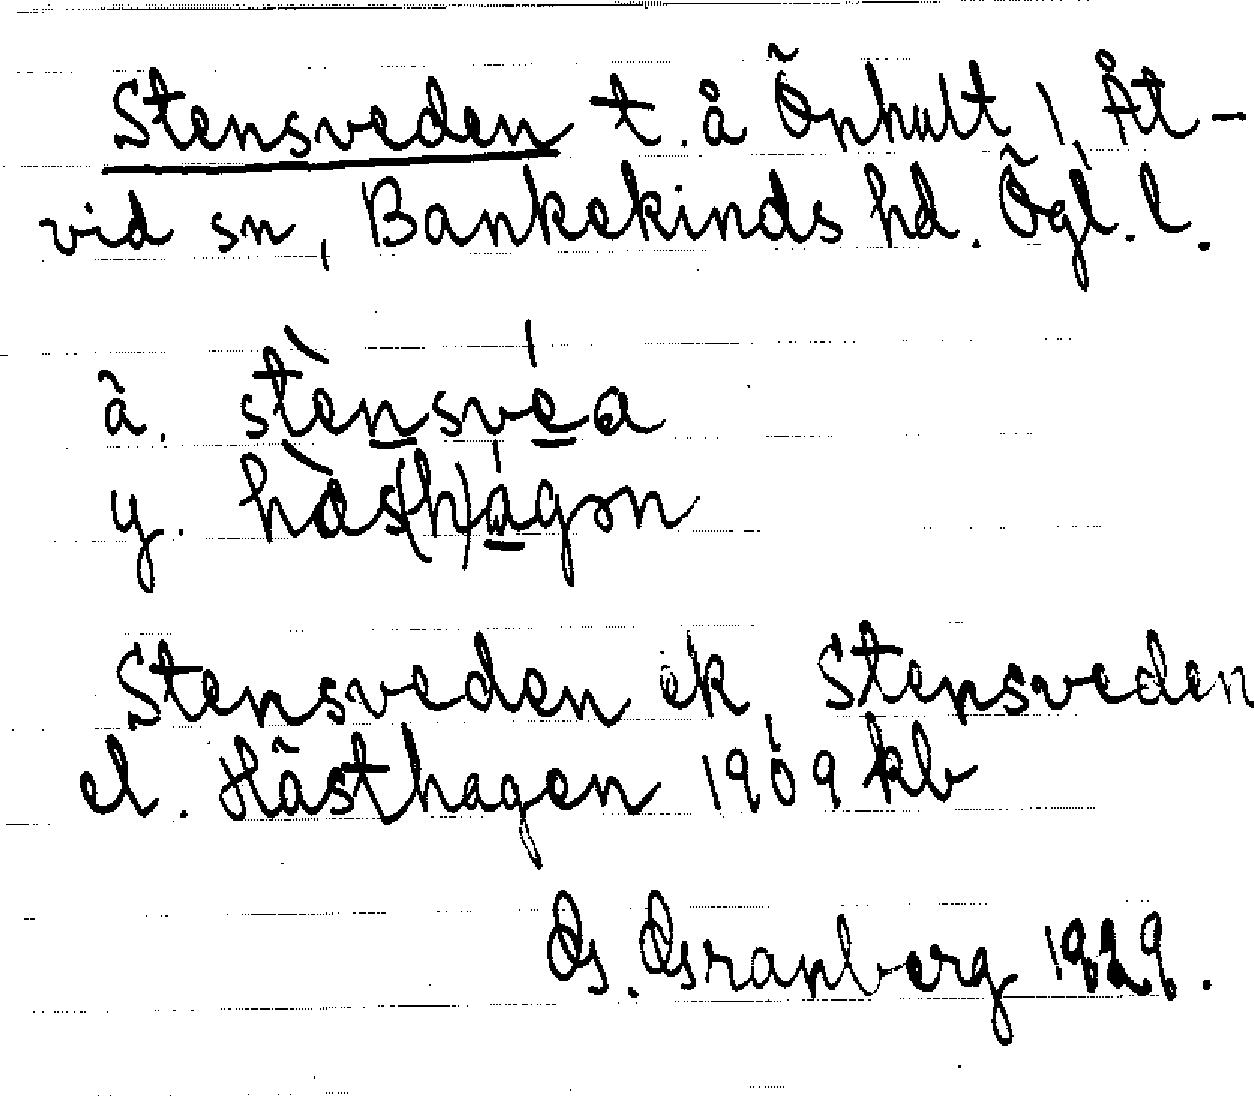 Stensveden t. å Önhult, Åt-
vid sn, Bankekinds hd. Ögl. l.
ä. stènsvéa
y. hàs(h)ágɘn
Stensveden ek, Stensveden
el. Hästhagen 1909 kb
G. Granberg 1929.